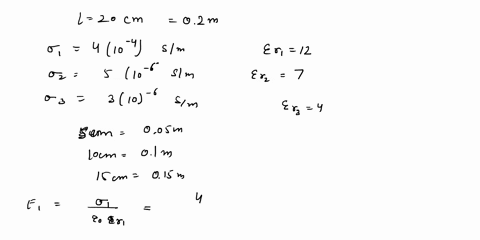 l = 20 cm = 0.2 m
σ1 = 4 (10^-4) s/m εr1 = 12
σ2 = 5 (10^-6) s/m εr2 = 7
σ3 = 3 (10)^-6 s/m εr3 = 4
5cm = 0.05m
10cm = 0.1 m
15 cm = 0.15 m
E1 = σ1 / ε0 εr1 = 4